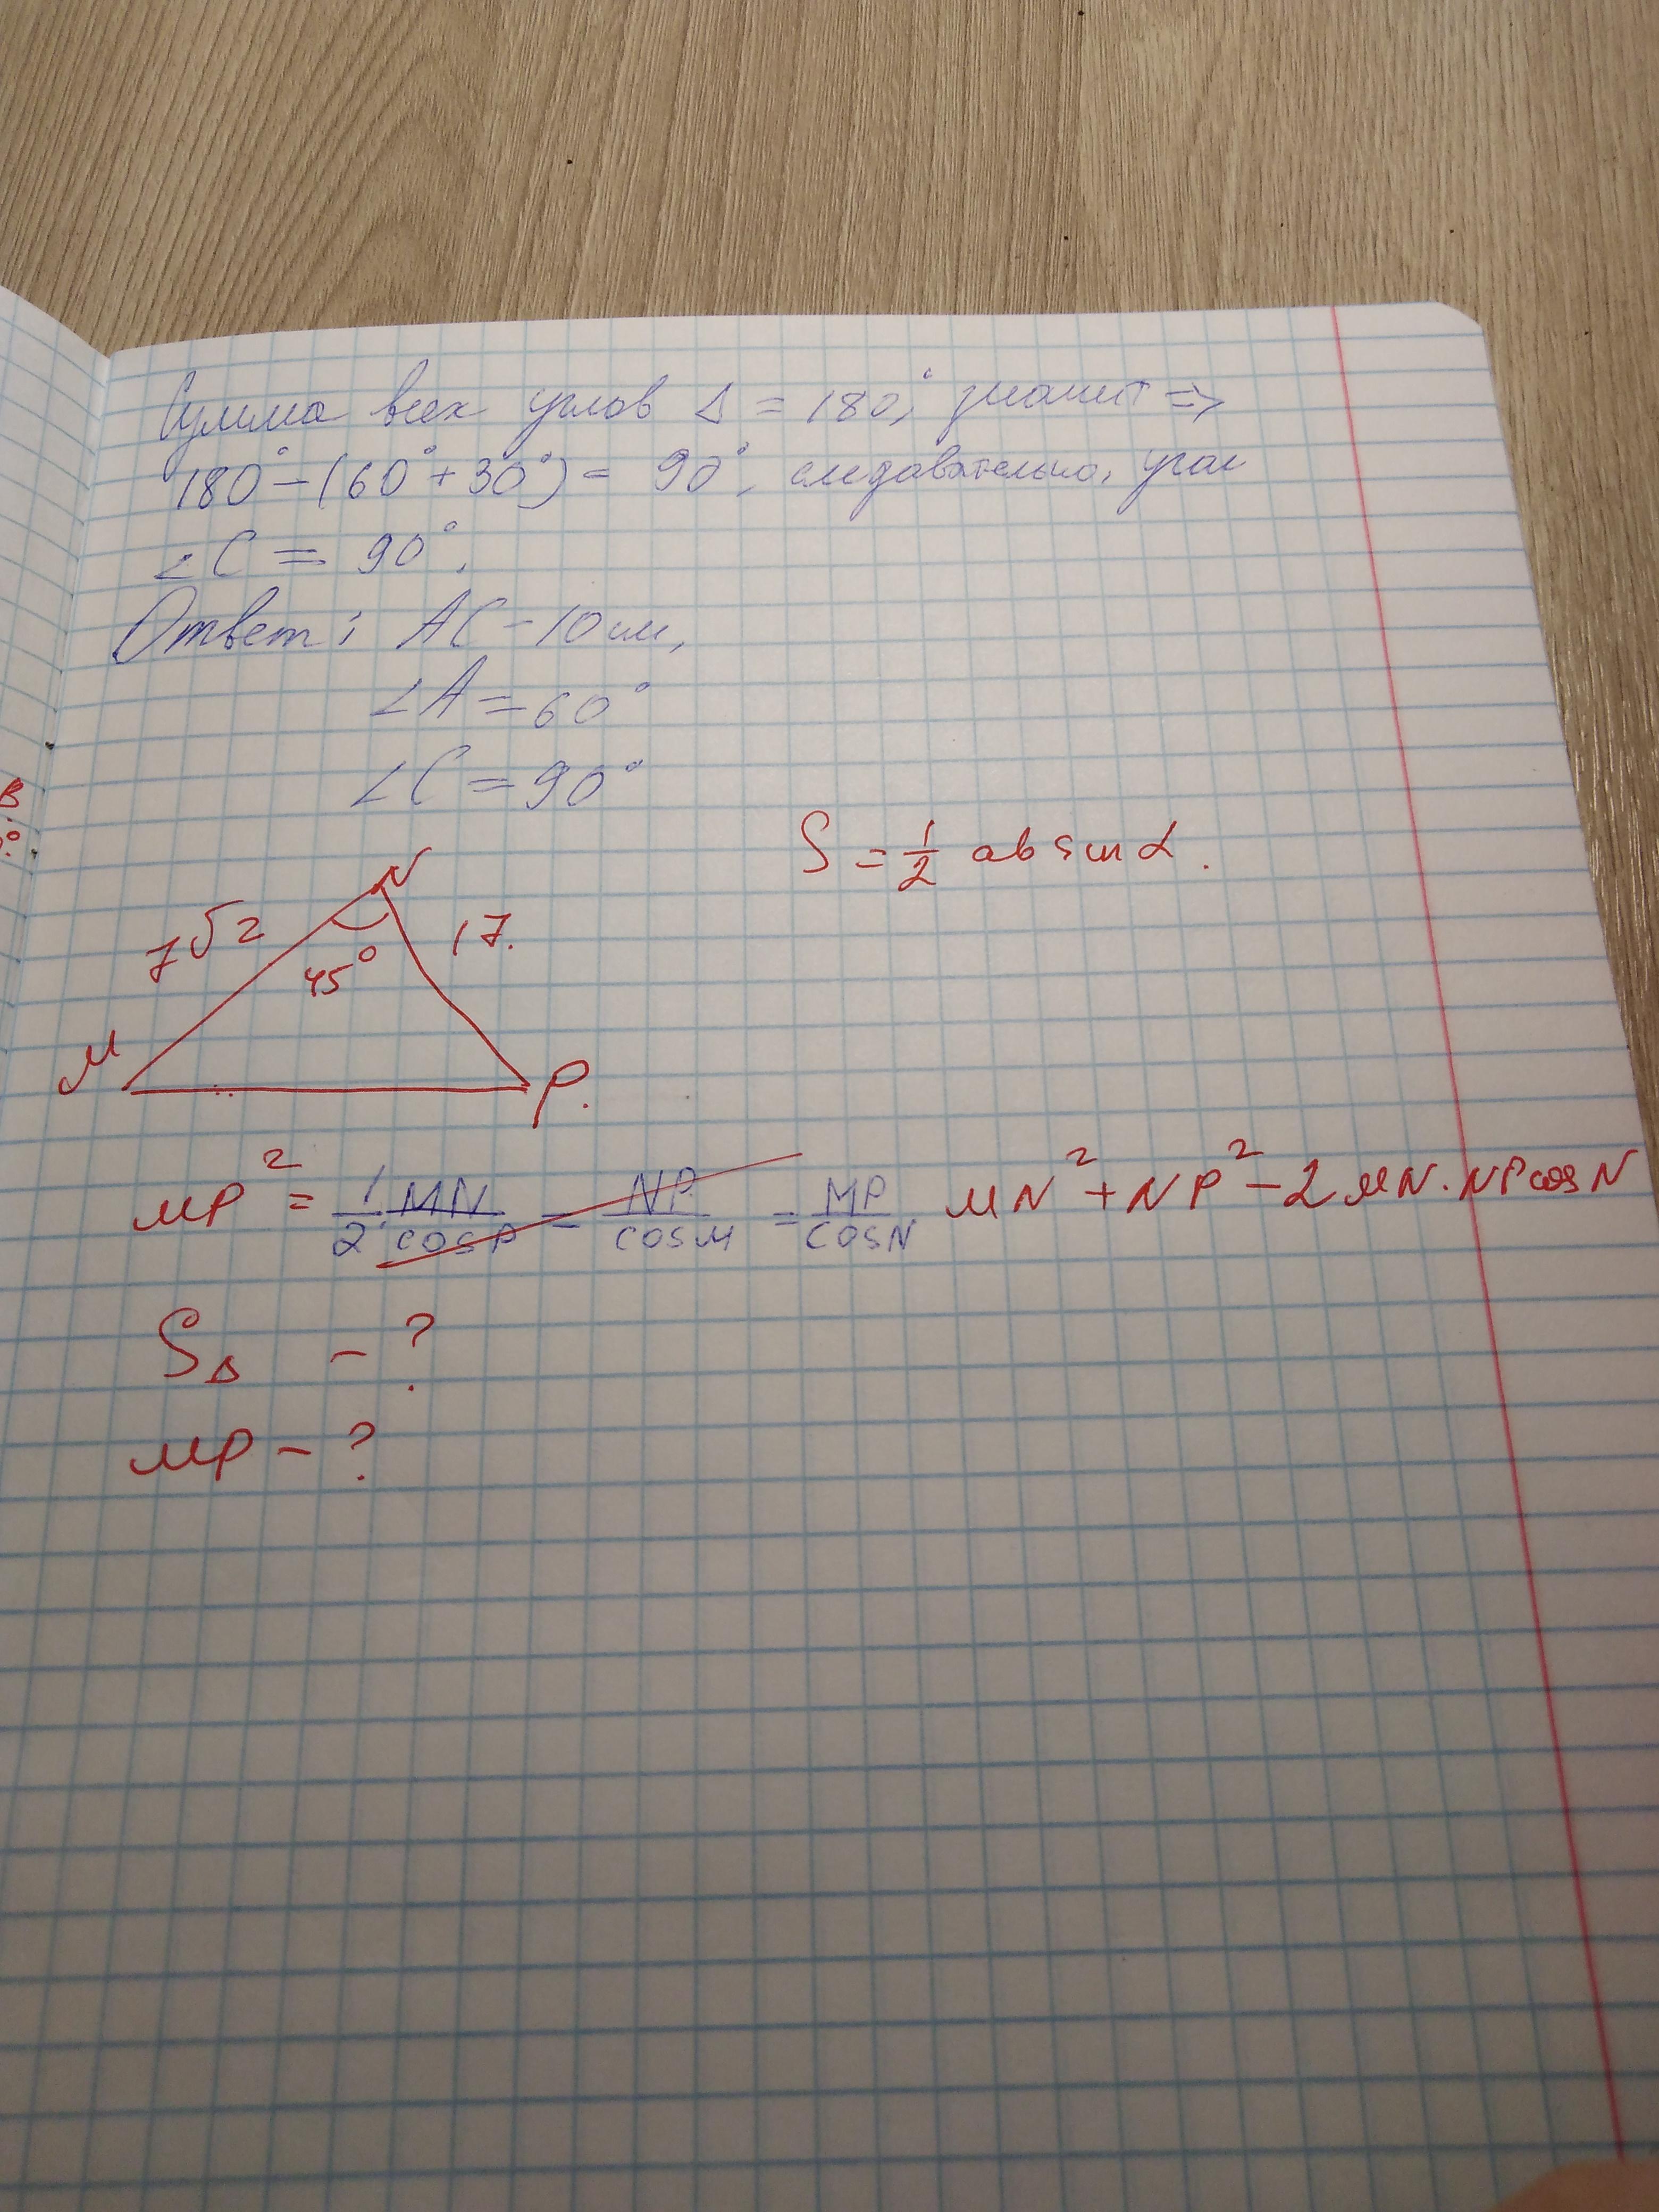 Сумма всех углов Δ = 180°, значит =>
180° - (60° + 30°) = 90°, следавательно, угол
∠C = 90°.
Ответ: AC - 10 см,
∠A = 60°
∠C = 90°
В
S = 1/2 ab sin α.
N
7√2
17.
45°
M
P.
MP² = 1/2 · MN/cos P = NP/cos M = MP/cos N MN² + NP² - 2 MN · NP cos N
SΔ - ?
MP - ?